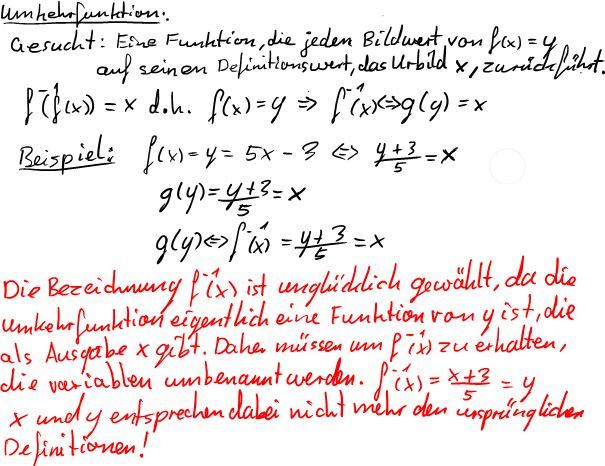 Umkehrfunktion:
Gesucht: Eine Funktion, die jeden Bildwert von f(x) = y
auf seinen Definitionswert, das Urbild x, zurückführt.
f⁻¹(f(x)) = x d.h. f(x) = y ⇒ f⁻¹(x) ⇔ g(y) = x
Beispiel: f(x) = y = 5x - 3 ⇔ (y+3)/5 = x
g(y) = (y+3)/5 = x
g(y) ⇔ f⁻¹(x) = (y+3)/5 = x
Die Bezeichnung f⁻¹(x) ist unglücklich gewählt, da die
Umkehrfunktion eigentlich eine Funktion von y ist, die
als Ausgabe x gibt. Daher müssen um f⁻¹(x) zu erhalten,
die variablen umbenannt werden. f⁻¹(x) = (x+3)/5 = y
x und y entsprechen dabei nicht mehr den ursprünglichen
Definitionen!